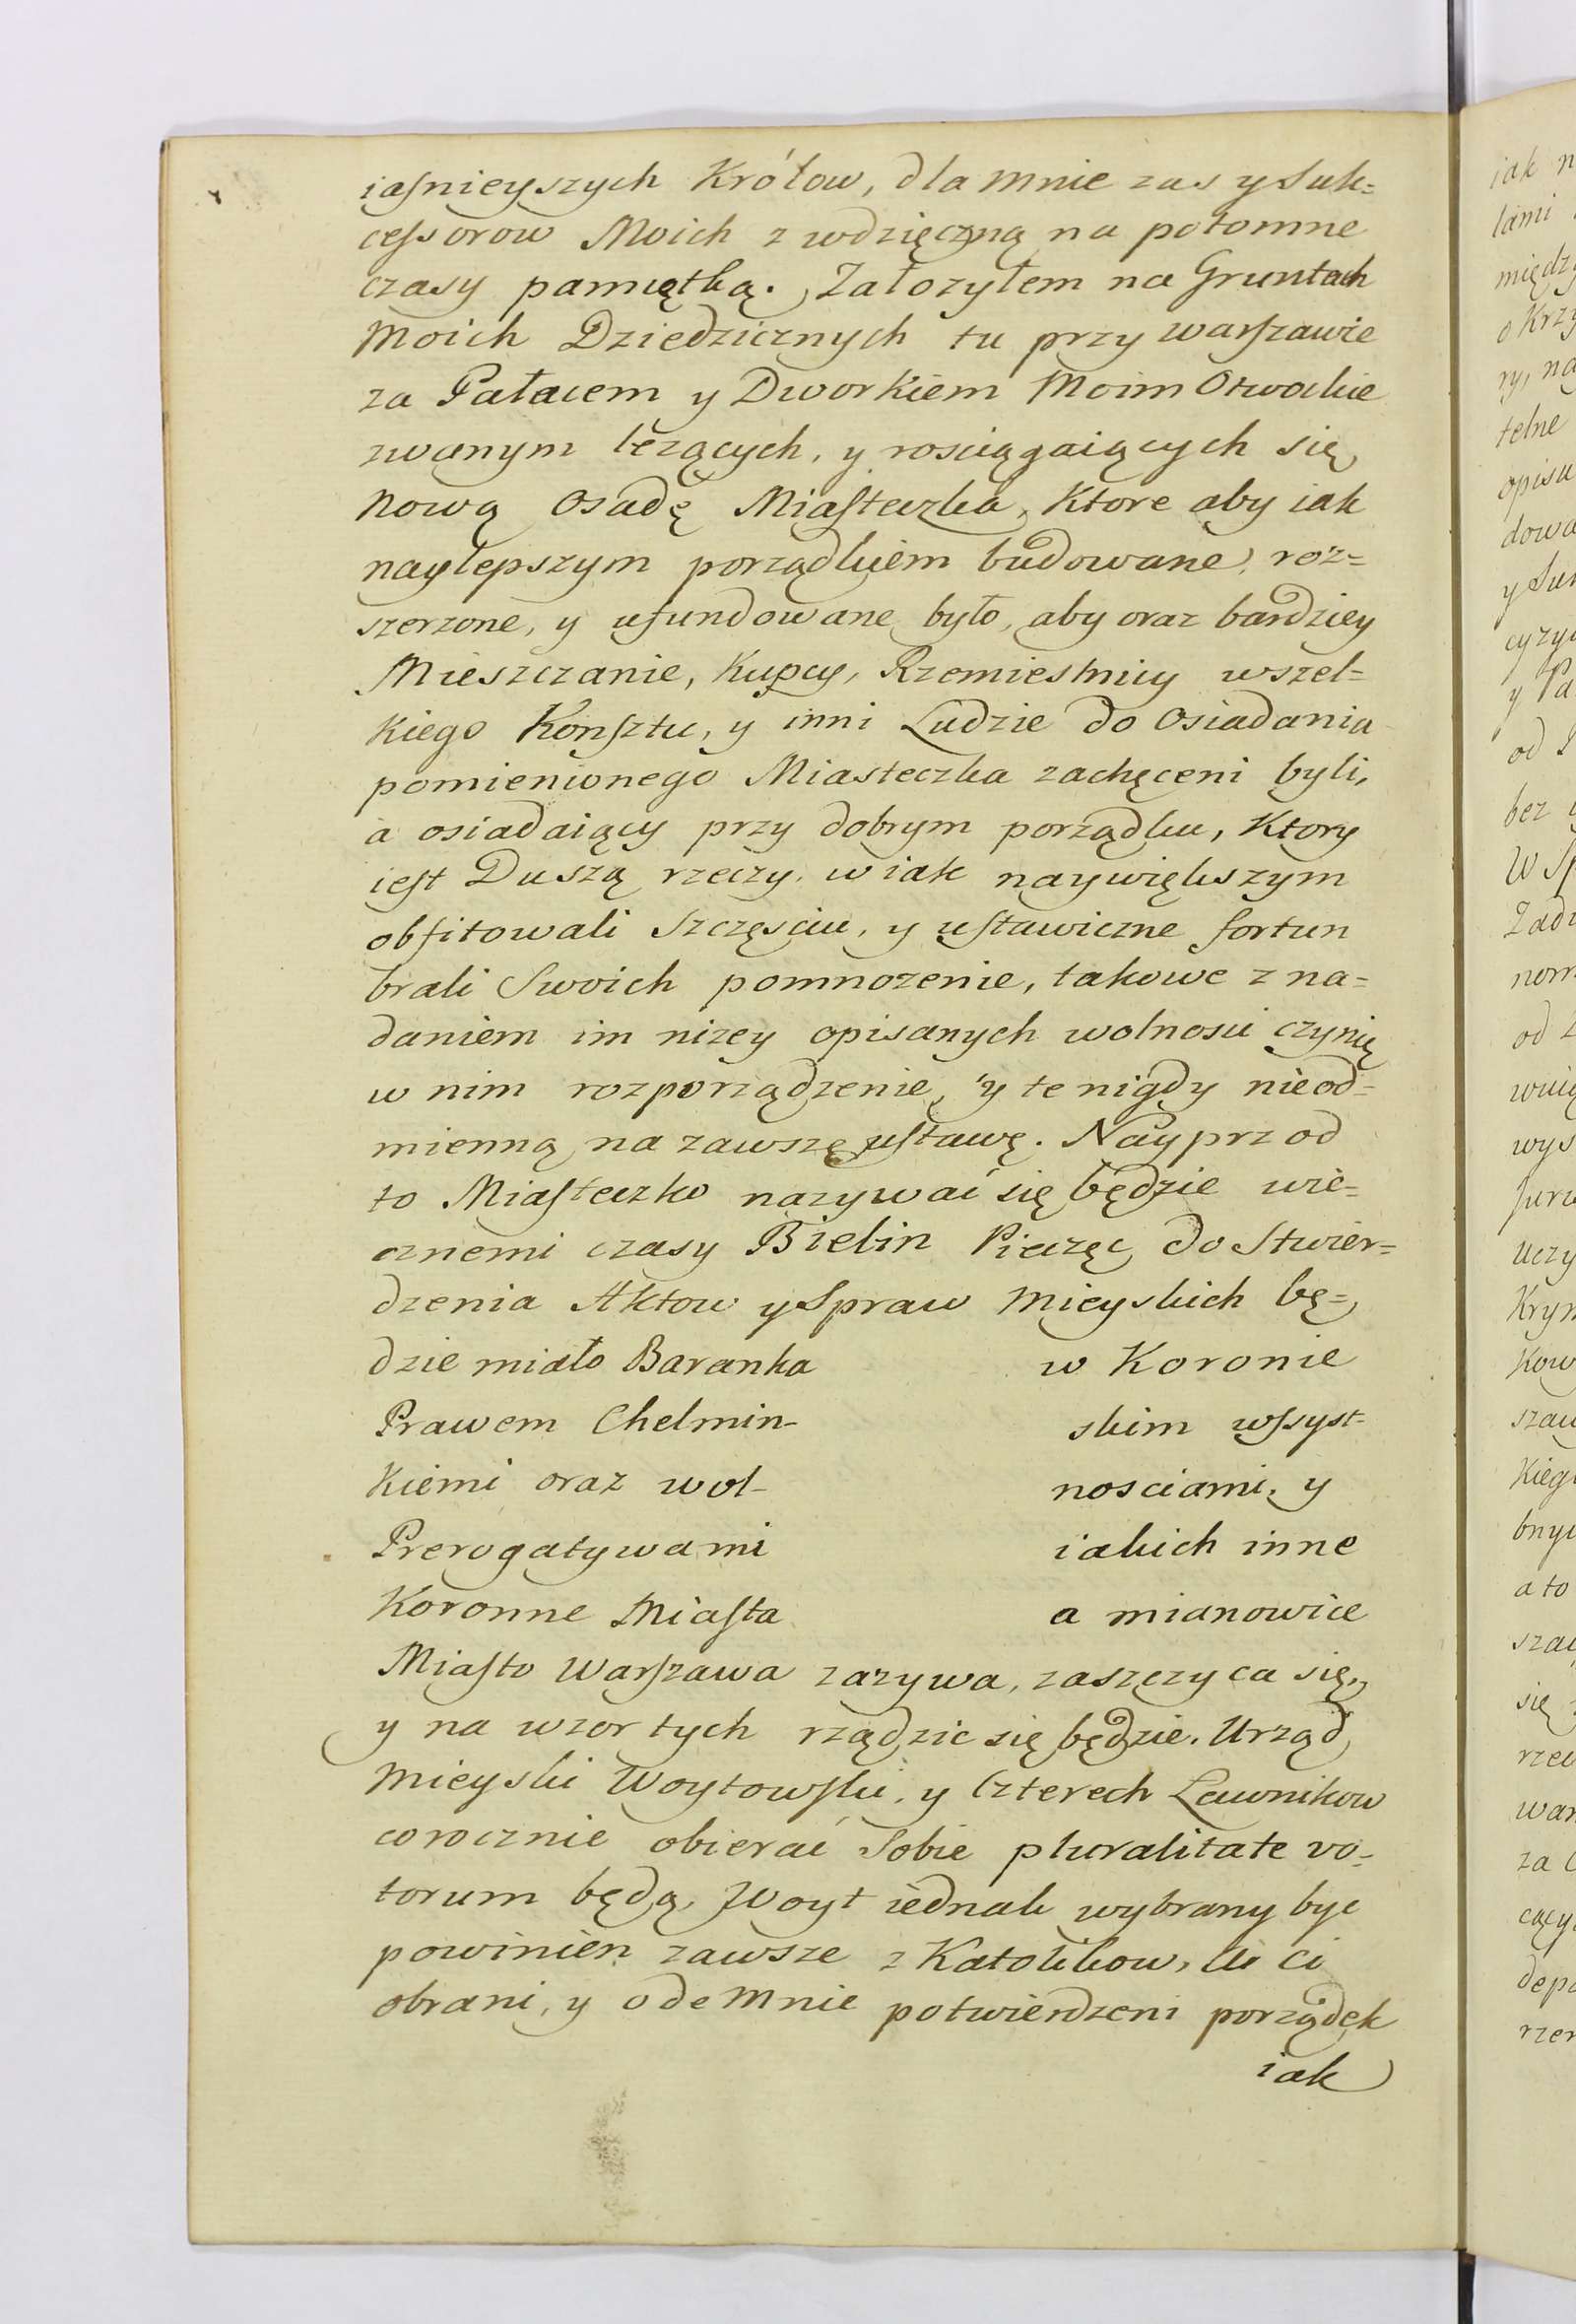 iaſnieyszych Królow, dla mnie zas y Suk=
ceſsorow Moich z wdzięczną na potomne
czasy pamiątką. Założyłem na Gruntach
Moich Dziedzicznych tu przy warſzawie
za Pałacem y Dworkiem Moim Otwockie
zwanym leżących, y rosciągaiących się
Nową Osadę Miaſteczka, Ktore aby iak
naylepszym porządkiem budowane, roz=
szerzone, y ufundowane było, aby oraz bardziey
Mieszczanie, Kupcy, Rzemiesłnicy wszel=
kiego Konſztu, y inni Ludzie do Osiadania
pomienionego Miasteczka zachęceni byli,
a osiadaiący przy dobrym porządku, Ktory
ieſt Duszą rzeczy, w iak naywiększym
obfitowali Szczęsciu, y uſtawiczne fortun
brali Swoich pomnożenie, takowe z na=
daniem im niżey opisanych wolnosci czynię
w nim rozporządzenie, y te nigdy nieod=
mienną na zawszę uſtawę. Nayprzod
to Miaſteczko nazywać się będzie wie=
cznemi czasy Bielin Pieczęc do Stwier=
dzenia Aktow y Spraw Mieyskich bę=
dzie miało Baranka w Koronie
Prawem Chelmin- skim wſsyst=
Kiemi oraz wol- nosciami, y
Prerogatywami iakich inne
Koronne Miaſta a mianowice
Miaſto Warſzawa zażywa, zaszczyca się,
y na wzor tych rządzic się będzie. Urząd
Mieyski Woytowſki, y Czterech Ławnikow
corocznie obierać Sobie pluralitate vo=
torum będą, Woyt iednak wybrany byc
powinien zawsze z Katolikow, Ci ci
obrani, y odemnie potwierdzeni porządek
iak
iak n
lami
międz
o Krzy
ry, na
telne
opisa
dowa
y Su
cyzy
y Pa
od
bez
W Sp
Zad
nom
od
wys
Jur
Uczy
Kry
Kow
szaw
Kieg
bny
a to
sza
się
rze
war
za
cący
depo
rze